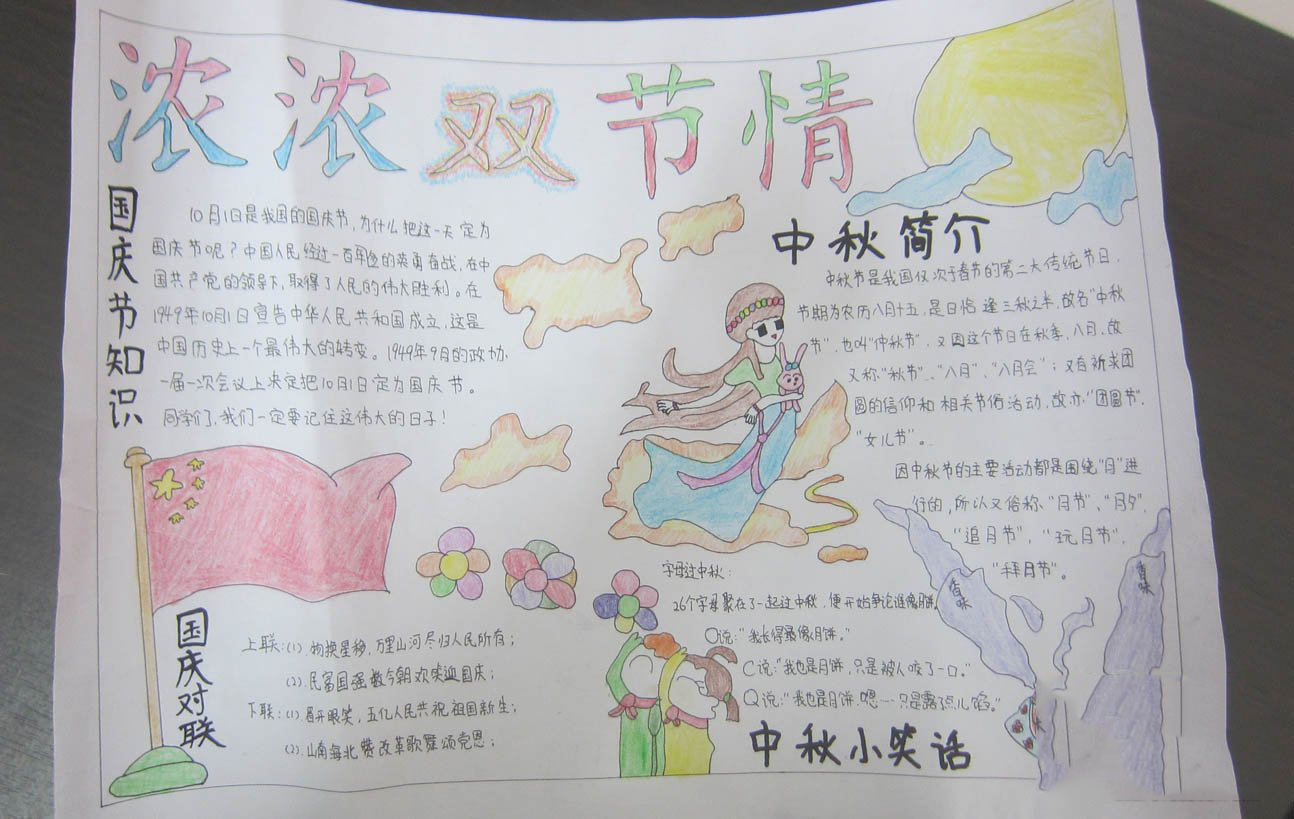 浓浓双节情
国庆节知识
10月1日是我国的国庆节,为什么把这一天定为
国庆节呢?中国人民经过一百年的英勇奋战,在中
国共产党的领导下,取得了人民的伟大胜利。在
1949年10月1日宣告中华人民共和国成立,这是
中国历史上一个最伟大的转变。1949年9月的政协
一届一次会议上决定把10月1日定为国庆节。
同学们,我们一定要记住这伟大的日子!
中秋简介
中秋节是我国仅次于春节的第二大传统节日,
节期为农历八月十五,是日恰逢三秋之半,故名"中秋
节",也叫"仲秋节",又因这个节日在秋季、八月,故
又称"秋节"、"八月"、"八月会";又有祈求团
圆的信仰和相关节俗活动,故亦"团圆节"、
"女儿节"。
因中秋节的主要活动都是围绕"月"进
行的,所以又俗称"月节"、"月夕"、
"追月节"、"玩月节"、
"拜月节"。
国庆对联
上联:(1).物换星移,万里山河尽归人民所有;
(2).民富国强数今朝欢笑迎国庆;
下联:(1).眉开眼笑,五亿人民共祝祖国新生;
(2).山南海北赞改革歌舞颂党恩;
字母过中秋:
26个字母聚在了一起过中秋,便开始争论谁像月饼。
O说:"我长得最像月饼。"
C说:"我也是月饼,只是被人咬了一口。"
Q说:"我也是月饼,嗯…只是露了点儿馅。"
中秋小笑话
香味
香味